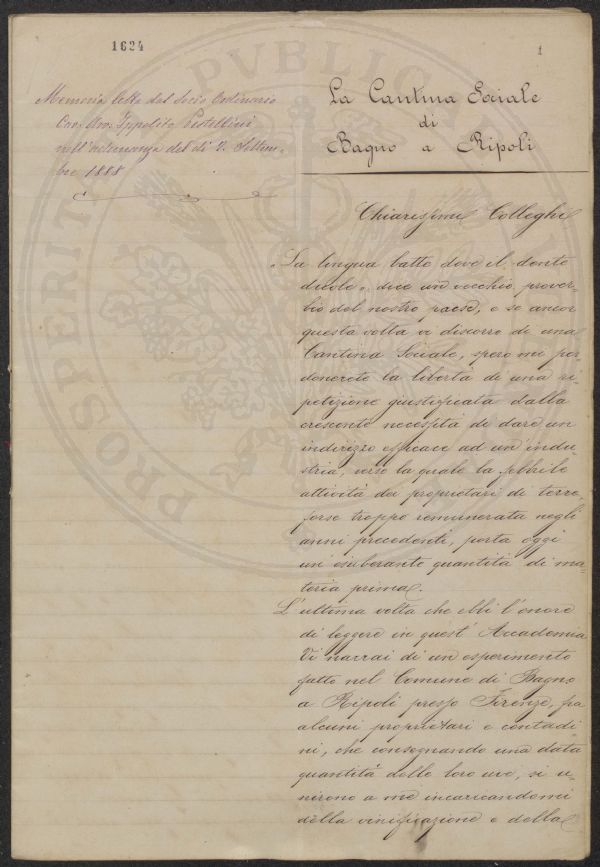 1624
1
Memoria letta dal Socio Ordinario
Cav. Avv. Ippolito Pestellini
nell'adunanza del dì 2. Settem-
bre 1888
La Cantina Sociale
di
Bagno a Ripoli
Chiarissimi Colleghi
"La lingua batte dove il dente
duole", dice un vecchio prover-
bio del nostro paese, e se ancor
questa volta vi discorro di una
Cantina Sociale, spero mi per-
donerete la libertà di una ri-
petizione giustificata dalla
crescente necessità di dare un
indirizzo efficace ad un'indu-
stria, verso la quale la febbrile
attività dei proprietari di terre
forse troppo remunerata negli
anni precedenti, porta oggi
un'esuberante quantità di ma-
teria prima.
L'ultima volta che ebbi l'onore
di leggere in quest'Accademia
Vi narrai di un esperimento
fatto nel Comune di Bagno
a Ripoli presso Firenze, fra
alcuni proprietari e contadi
ni, che consegnando una data
quantità delle loro uve, si u-
nirono a me incaricandomi
della vinificazione e della
PROSPERITATI
PVBLICAE